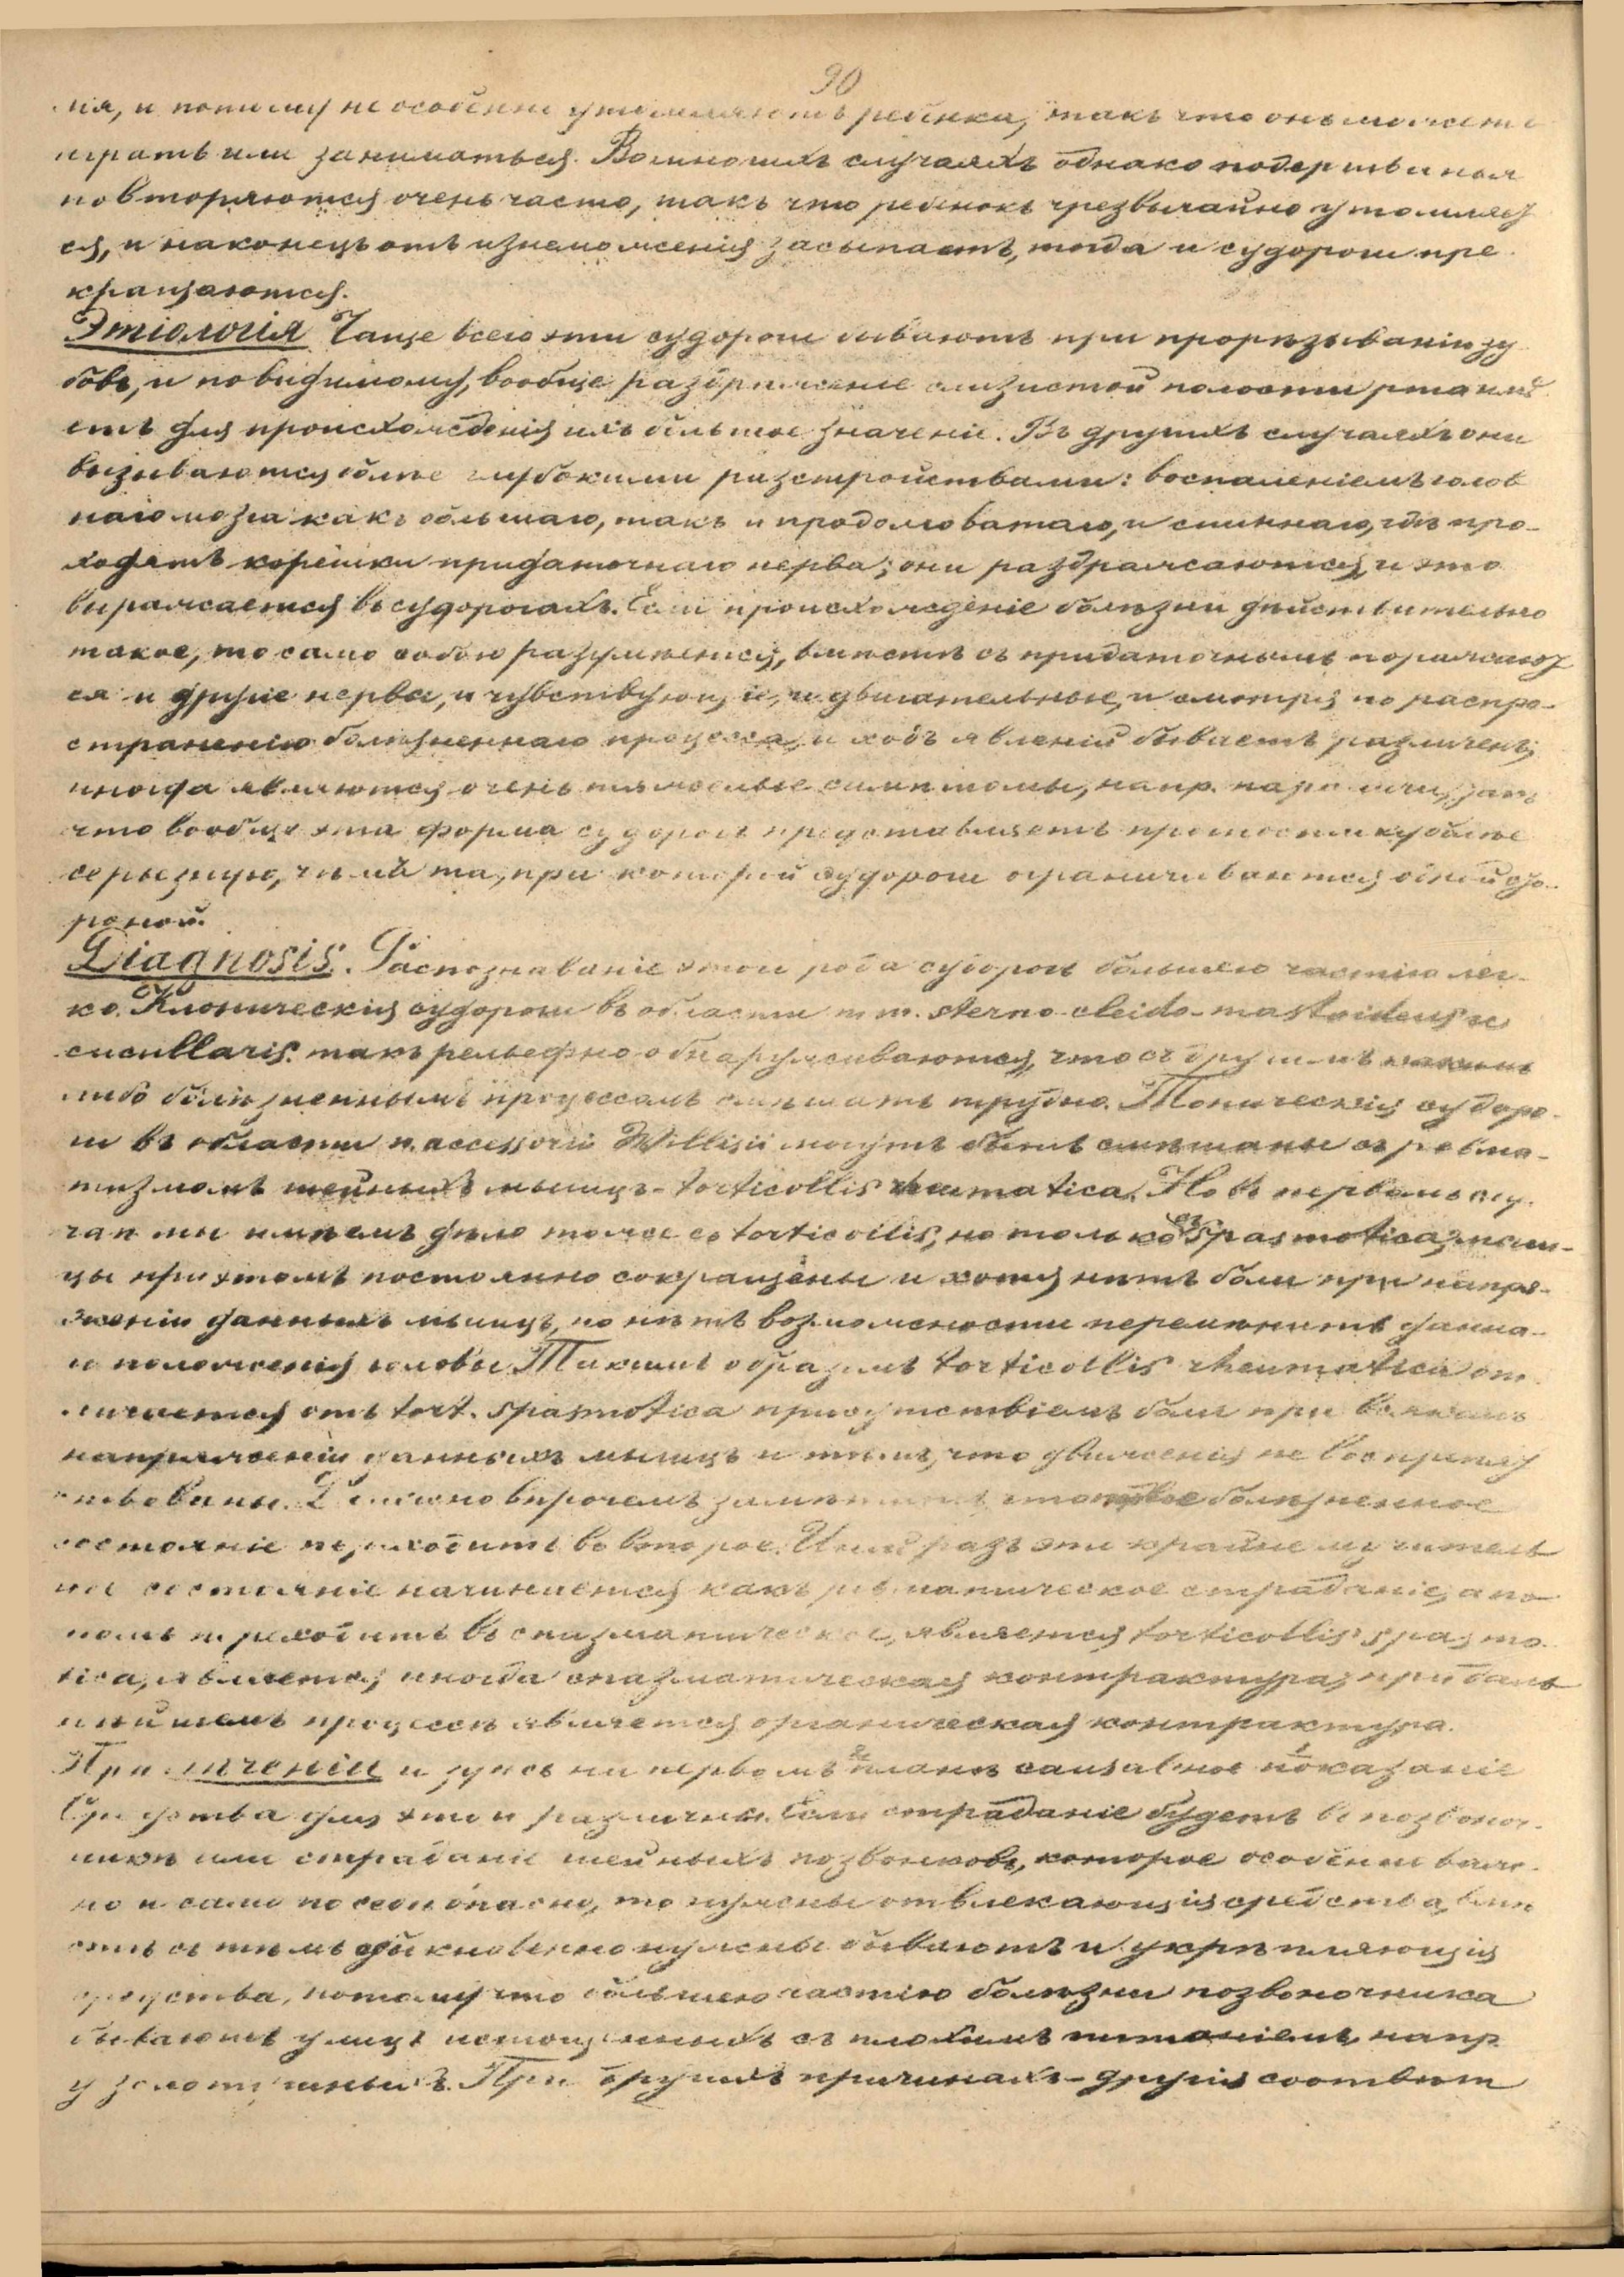 90
нія, и потому не особенно утомляютъ ребенка, такъ что онъ можетъ
играть или заниматься. Во многихъ случаяхъ однако подергиванья
повторяются очень часто, такъ что ребенокъ чрезвычайно утомляет
ся, и наконецъ отъ изнеможенія засыпаетъ, тогда и судороги пре
кращаются.
Этіологія Чаще всего эти судороги бываютъ при прорѣзываніи зу
бовъ, и повидимому, вообще раздраженіе слизистой полости рта имѣ
етъ для происхожденія ихъ большое значеніе. Въ другихъ случаяхъ они
вызываются болѣе глубокими разстройствами: воспаленіемъ голов
наго мозга какъ большаго, такъ и продолговатаго, и спиннаго, гдѣ про-
ходятъ корешки придаточнаго нерва; они раздражаются, и это
выражается въ судорогахъ. Если происхожденіе болѣзни дѣйствительно
такое, то само собою разумѣется, вмѣстѣ съ придаточнымъ поражают
ся и другіе нервы, и чувствующіе, и двигательные, и смотря по распро-
страненію болѣзненнаго процесса, и ходъ явленій бываетъ различенъ;
иногда являются очень тяжелые симптомы, напр. параличи, такъ
что вообще эта форма судорогъ представляетъ прогностику болѣе
серьезную, чѣмъ та, при которой судороги ограничиваются одной сто-
роной.
Diagnosis. Распознаваніе этого рода судорогъ большею частію лег-
ко. Клоническія судороги въ области m.m. sterno-cleido-mastoideus и
cucullaris такъ рельефно обнаруживаются, что съ другимъ какимъ
либо болѣзненнымъ процессомъ смѣшать трудно. Тоническія судоро-
ги въ области n. accessorii Willisii могутъ быть смѣшаны съ ревма-
тизмомъ шейныхъ мышцъ - torticollis rheumatica. Но въ первомъ слу-
чаѣ мы имѣемъ дѣло тоже съ torticollis, но только съ spasmotica, мыш-
цы при этомъ постоянно сокращены и хотя нѣтъ боли при напря-
женіи данныхъ мышцъ, но нѣтъ возможности перемѣнить данна-
го положенія головы. Такимъ образомъ torticollis rheumatica от-
личается отъ tort. spasmotica присутствіемъ боли при всякомъ
напряженіи данныхъ мышцъ и тѣмъ, что движенія не воспрепят
ствованы. Должно впрочемъ замѣтить что первое болѣзненное
состояніе переходитъ во второе. Иной разъ это крайне мучитель
ное состояніе начинается какъ ревматическое страданіе, а по
томъ переходитъ въ спазматическое, является torticollis spasmo-
tica, является иногда спазматическая контрактура, при даль
нѣйшемъ процессѣ является органическая контрактура.
При лѣченіи и здѣсь на первомъ планѣ causalное показаніе
Средства для этого различны. Если страданіе будетъ въ позвоноч-
никѣ или страданіе шейныхъ позвонковъ, которое особенно важ-
но и само по себѣ опасно, то нужны отвлекающія средства, вмѣ
стѣ съ тѣмъ обыкновенно нужны бываютъ и укрѣпляющія
средства, потому что большею частію болѣзни позвоночника
бываютъ у лицъ истощенныхъ съ плохимъ питаніемъ, напр.
у золотушныхъ. При другихъ причинахъ - другія соотвѣт